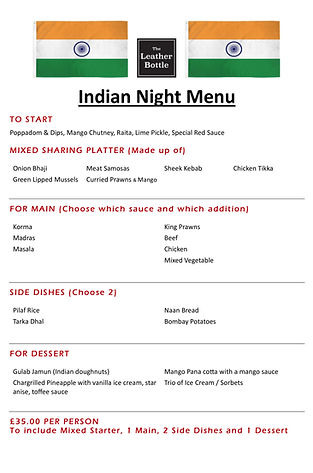 The
Leather
Bottle
Indian Night Menu
TO START
Poppadom & Dips, Mango Chutney, Raita, Lime Pickle, Special Red Sauce
MIXED SHARING PLATTER (Made up of)
Onion Bhaji Meat Samosas Sheek Kebab Chicken Tikka
Green Lipped Mussels Curried Prawns & Mango
FOR MAIN (Choose which sauce and which addition)
Korma King Prawns
Madras Beef
Masala Chicken
Mixed Vegetable
SIDE DISHES (Choose 2)
Pilaf Rice Naan Bread
Tarka Dhal Bombay Potatoes
FOR DESSERT
Gulab Jamun (Indian doughnuts) Mango Pana cotta with a mango sauce
Chargrilled Pineapple with vanilla ice cream, star Trio of Ice Cream / Sorbets
anise, toffee sauce
£35.00 PER PERSON
To include Mixed Starter, 1 Main, 2 Side Dishes and 1 Dessert